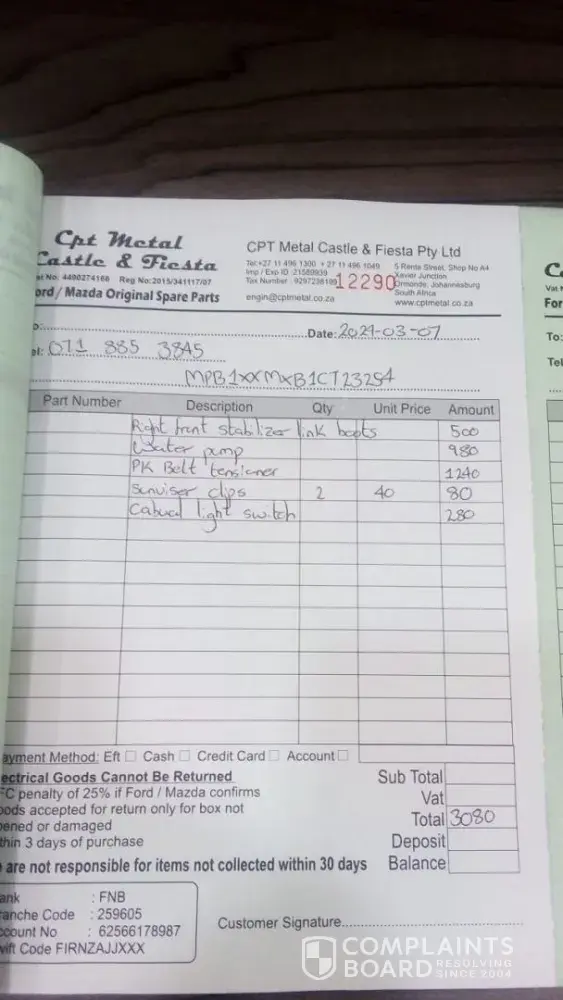 Cpt Metal
Castle & Fiesta
at No. 4490274168 Reg No:2015/341117/07
ord / Mazda Original Spare Parts
CPT Metal Castle & Fiesta Pty Ltd
Tel:+27 11 496 1300 + 27 11 496 1049
Imp / Exp ID :21589939
Tax Number : 9297238189
engin@cptmetal.co.za
12290
5 Renta Street, Shop No A4
Xavier Junction
Ormonde, Johannesburg
South Africa
www.cptmetal.co.za
o:
Date: 2024-03-07
el: 071 885 3845
MPB1XXMXB1CT23254
Part Number Description Qty Unit Price Amount
Right front stabilizer link boots 500
Water pump 980
PK Belt tensioner 1240
Sunviser clips 2 40 80
Cabual light switch 280
ayment Method: Eft Cash Credit Card Account
ectrical Goods Cannot Be Returned
FC penalty of 25% if Ford / Mazda confirms
oods accepted for return only for box not
pened or damaged
thin 3 days of purchase
are not responsible for items not collected within 30 days
Sub Total
Vat
Total 3080
Deposit
Balance
ank : FNB
ranche Code : 259605
ccount No : 62566178987
wift Code FIRNZAJJXXX
Customer Signature
C
Vat
For
To:
Tel
COMPLAINTS
BOARD RESOLVING
SINCE 2004